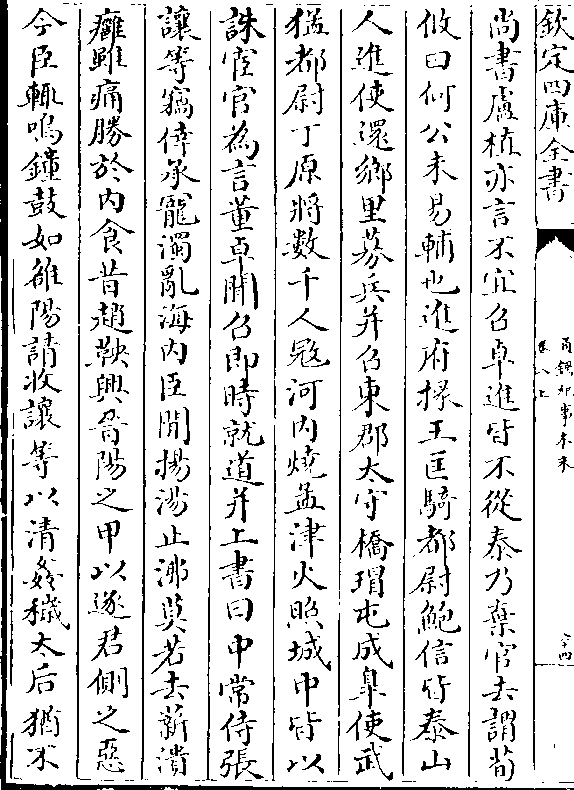 欽定四庫全書
通鑑紀事本末
卷八上
六四
尚書盧植亦言不宜召卓進皆不從泰乃棄官去謂荀
攸曰何公未易輔也進府掾王匡騎都尉鮑信皆泰山
人進使還鄉里募兵并召東郡太守橋瑁屯成臯使武
猛都尉丁原將數千人㓂河内燒孟津火照城中皆以
誅宦官為言董卓聞召即時就道并上書曰中常侍張
讓等竊倖承寵濁亂海内臣聞揚湯止沸莫若去薪潰
癰雖痛勝於内食昔趙鞅興晉陽之甲以逐君側之惡
今臣輒鳴鐘鼓如雒陽請收讓等以清姦穢太后猶不